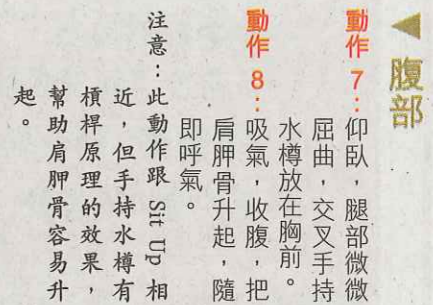 ◀腹部
動作7：仰臥，腿部微微
屈曲，交叉手持
水樽放在胸前。
動作8：吸氣，收腹，把
肩胛骨升起，隨
即呼氣。
注意：此動作跟 Sit Up 相
近，但手持水樽有
槓桿原理的效果，
幫助肩胛骨容易升
起。